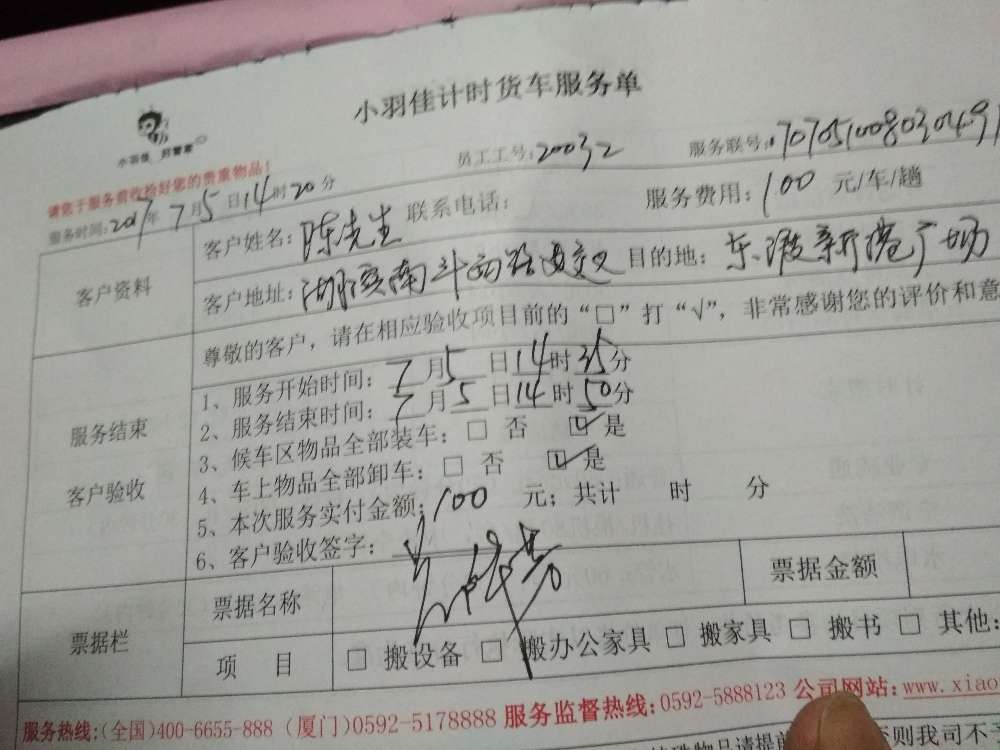 小羽佳计时货车服务单
小羽佳 好管家
员工工号:20032 服务联号:1707051008030491
请您于服务前收拾好您的贵重物品!
服务时间:2017年7月5日14时20分
客户资料 客户姓名:陈先生 联系电话: 服务费用:100 元/车/趟
客户地址:湖滨南斗西路 目的地:东渡新港广场
尊敬的客户,请在相应验收项目前的“□”打“√”,非常感谢您的评价和意
服务结束 客户验收
1、服务开始时间:7月5日14时35分
2、服务结束时间:7月5日14时50分
3、候车区物品全部装车:□ 否 ☑ 是
4、车上物品全部卸车:□ 否 ☑ 是
5、本次服务实付金额:100 元;共计 时 分
6、客户验收签字:
票据栏 票据名称 票据金额
项 目 □ 搬设备 □ 搬办公家具 □ 搬家具 □ 搬书 □ 其他:
服务热线:(全国)400-6655-888 (厦门)0592-5178888 服务监督热线:0592-5888123 公司网站:www.xiao